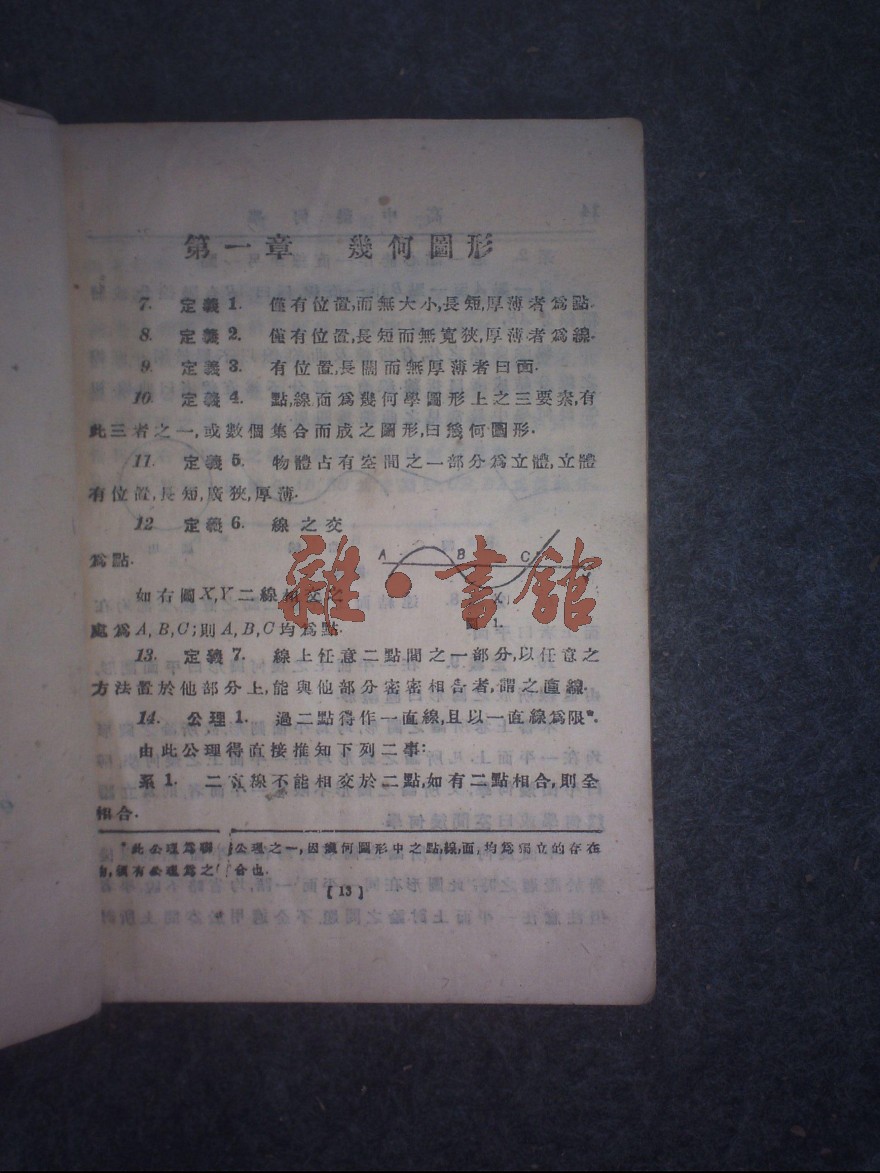 第一章 幾何圖形
7. 定義1. 僅有位置,而無大小,長短,厚薄者爲點.
8. 定義2. 僅有位置,長短而無寬狹,厚薄者爲線.
9. 定義3. 有位置,長闊而無厚薄者曰面.
10. 定義4. 點,線,面爲幾何學圖形上之三要素,有
此三者之一,或數個集合而成之圖形,曰幾何圖形.
11. 定義5. 物體占有空間之一部分爲立體,立體
有位置,長短,廣狹,厚薄.
12 定義6. 線之交
爲點.
A B C
雜·書館
如右圖X,Y二線相交之
處爲A,B,C;則A,B,C均爲點.
圖1.
13. 定義7. 線上任意二點間之一部分,以任意之
方法置於他部分上,能與他部分密密相合者,謂之直線.
14. 公理1. 過二點得作一直線,且以一直線爲限*.
由此公理得直接推知下列二事:
系1. 二直線不能相交於二點,如有二點相合,則全
相合.
*此公理爲聯 公理之一,因幾何圖形中之點,線,面,均爲獨立的存在
物,須有公理爲之 合也.
[13]